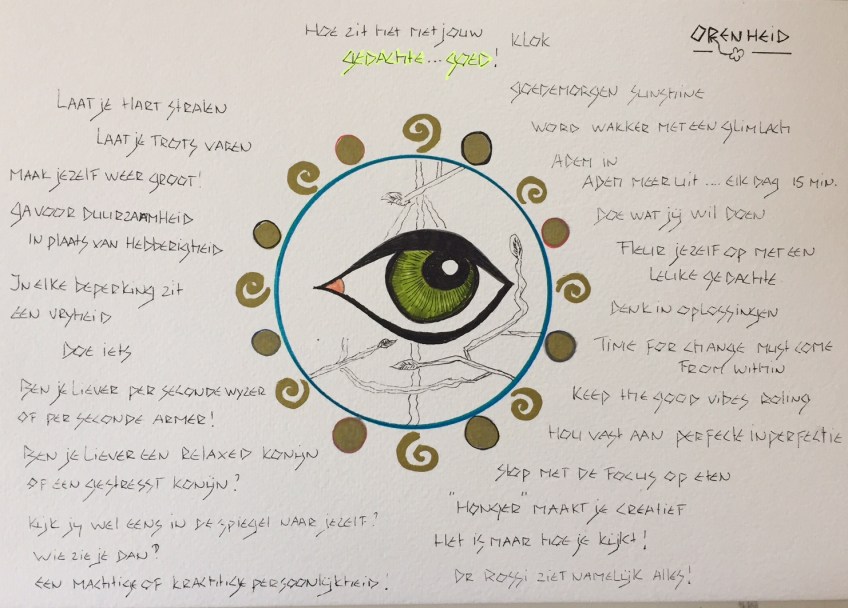 HOE ZIT HET MET JOUW
GEDACHTE... GOED!
KLOK
ORENHEID
GOEDEMORGEN SUNSHINE
WORD WAKKER MET EEN GLIMLACH
ADEM IN
ADEM MEER UIT .... ELK DAG 15 MIN.
DOE WAT JIJ WIL DOEN
FLEUR JEZELF OP MET EEN
LEUKE GEDACHTE
DENK IN OPLOSSINGEN
TIME FOR CHANGE MUST COME
FROM WITHIN
KEEP THE GOOD VIBES ROLING
HOU VAST AAN PERFECTE INPERFECTIE
STOP MET DE FOCUS OP ETEN
"HONGER" MAAKT JE CREATIEF
HET IS MAAR HOE JE KIJKT!
DR ROSSI ZIET NAMELIJK ALLES!
LAAT JE HART STRALEN
LAAT JE TROTS VAREN
MAAK JEZELF WEER GROOT!
GA VOOR DUURZAAMHEID
IN PLAATS VAN HEBBERIGHEID
IN ELKE BEPERKING ZIT
EEN VRYHEID
DOE IETS
BEN JE LIEVER PER SECONDE WYZER
OF PER SECONDE ARMER!
BEN JE LIEVER EEN RELAXED KONIJN
OF EEN GESTRESST KONIJN?
KIJK JIJ WEL EENS IN DE SPIEGEL NAAR JEZELF?
WIE ZIE JE DAN?
EEN MACHTIGE OF KRACHTIGE PERSOONLIJKHEID!